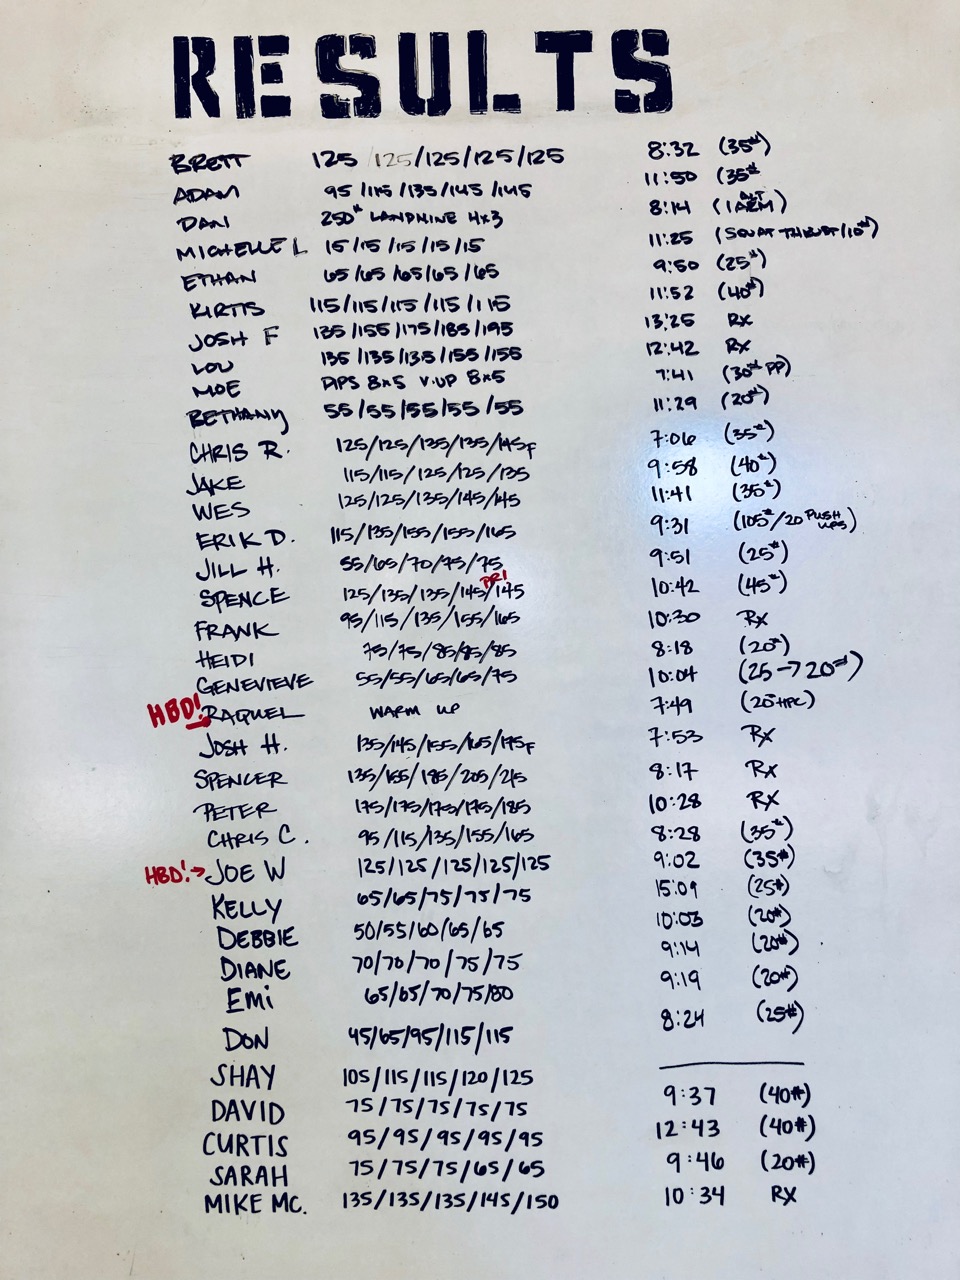 RESULTS
BRETT 125/125/125/125/125 8:32 (35#)
ADAM 95/115/135/145/145 11:50 (35#
DAN 250# LANDMINE 4x3 8:14 (1 ALT ARM)
MICHELLE L 15/15/15/15/15 11:25 (SQUAT THRUST/10#)
ETHAN 65/65/65/65/65 9:50 (25#)
KIRTIS 115/115/115/115/115 11:52 (40#)
JOSH F 135/155/175/185/195 13:25 Rx
LOU 135/135/135/155/155 12:42 Rx
MOE DIPS 8x5 V-UP 8x5 7:41 (30# PP)
BETHANY 55/55/55/55/55 11:29 (20#)
CHRIS R. 125/125/135/135/145F 7:06 (35#)
JAKE 115/115/125/125/135 9:58 (40#)
WES 125/125/135/145/145 11:41 (35#)
ERIK D. 115/135/155/155/165 9:31 (105#/20 PUSH UPS)
JILL H. 55/65/70/75/75 9:51 (25#)
PR!
SPENCE 125/135/135/145/145 10:42 (45#)
FRANK 95/115/135/155/165 10:30 Rx
HEIDI 75/75/85/85/85 8:18 (20#)
GENEVIEVE 55/55/65/65/75 10:04 (25→20#)
HBD! RAQUEL WARM UP 7:49 (20# HPC)
JOSH H. 135/145/155/165/175F 7:53 Rx
SPENCER 135/155/185/205/215 8:17 Rx
PETER 175/175/175/175/185 10:28 Rx
CHRIS C. 95/115/135/155/165 8:28 (35#)
HBD!→ JOE W 125/125/125/125/125 9:02 (35#)
KELLY 65/65/75/75/75 15:09 (25#)
DEBBIE 50/55/60/65/65 10:03 (20#)
DIANE 70/70/70/75/75 9:14 (20#)
EMi 65/65/70/75/80 9:19 (20#)
DON 45/65/95/115/115 8:24 (25#)
SHAY 105/115/115/120/125 —
DAVID 75/75/75/75/75 9:37 (40#)
CURTIS 95/95/95/95/95 12:43 (40#)
SARAH 75/75/75/65/65 9:46 (20#)
MIKE MC. 135/135/135/145/150 10:34 RX